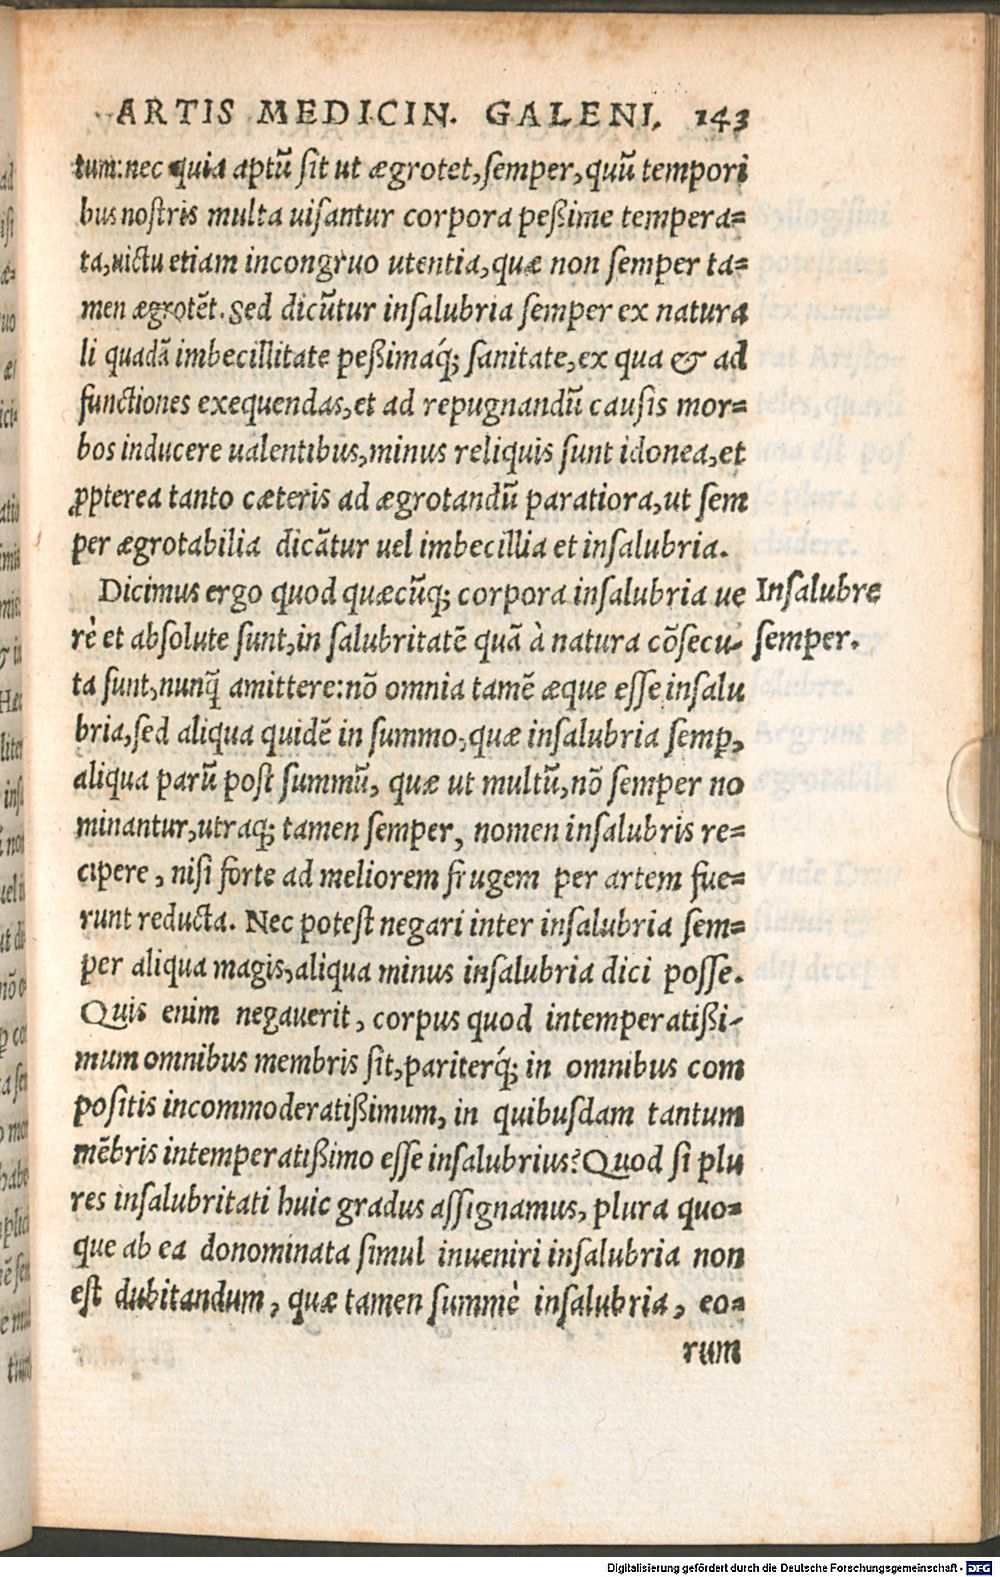 ARTIS MEDICIN. GALENI. 143
tum: nec quia aptū sit ut ægrotet, semper, quū tempori
bus nostris multa uisantur corpora peßime tempera=
ta, uictu etiam incongruo utentia, quæ non semper ta=
men ægrotēt. Sed dicūtur insalubria semper ex natura
li quadā imbecillitate peßimaq́; sanitate, ex qua & ad
functiones exequendas, et ad repugnandū causis mor=
bos inducere ualentibus, minus reliquis sunt idonea, et
ꝓpterea tanto cæteris ad ægrotandū paratiora, ut sem
per ægrotabilia dicātur uel imbecillia et insalubria.
Dicimus ergo quod quæcūq; corpora insalubria ue
rè et absolute sunt, in salubritatē quā à natura cōsecu-
ta sunt, nunq̄ amittere: nō omnia tamē æque esse insalu
bria, sed aliqua quidē in summo, quæ insalubria semꝑ,
aliqua parū post summū, quæ ut multū, nō semper no
minantur, utraq; tamen semper, nomen insalubris re=
cipere, nisi forte ad meliorem frugem per artem fue=
runt reducta. Nec potest negari inter insalubria sem=
per aliqua magis, aliqua minus insalubria dici posse.
Quis enim negauerit, corpus quod intemperatißi-
mum omnibus membris sit, pariterq́; in omnibus com
positis incommoderatißimum, in quibusdam tantum
mēbris intemperatißimo esse insalubrius? Quod si plu
res insalubritati huic gradus assignamus, plura quo=
que ab ea donominata simul inueniri insalubria non
est dubitandum, quæ tamen summè insalubria, eo=
rum
Insalubre
semper.
Digitalisierung gefördert durch die Deutsche Forschungsgemeinschaft - DFG